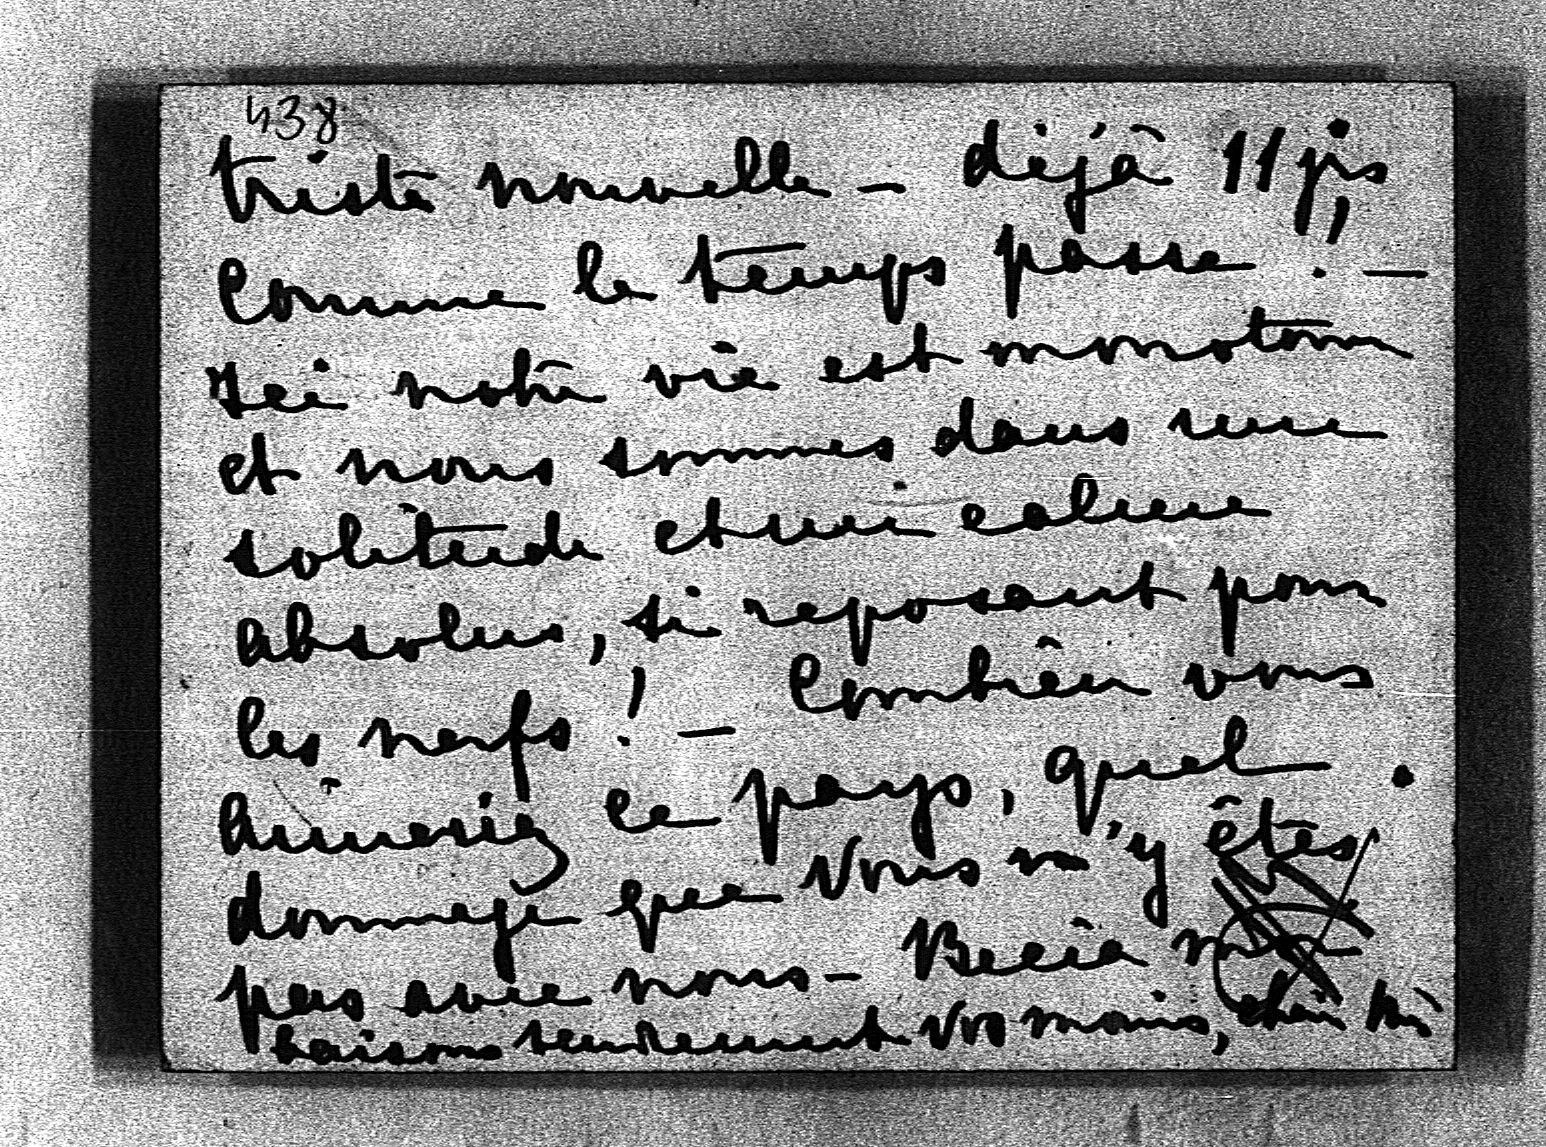 438
triste nouvelle – déjà 11 jrs,
comme le temps passe! –
Ici notre vie est monotone
et nous sommes dans une
solitude et un calme
absolus, si reposant pour
les nerfs! – Combien vous
aimeriez ce pays, quel
dommage que vous n'y êtes
pas avec nous –
baisons tendrement vos mains, chère